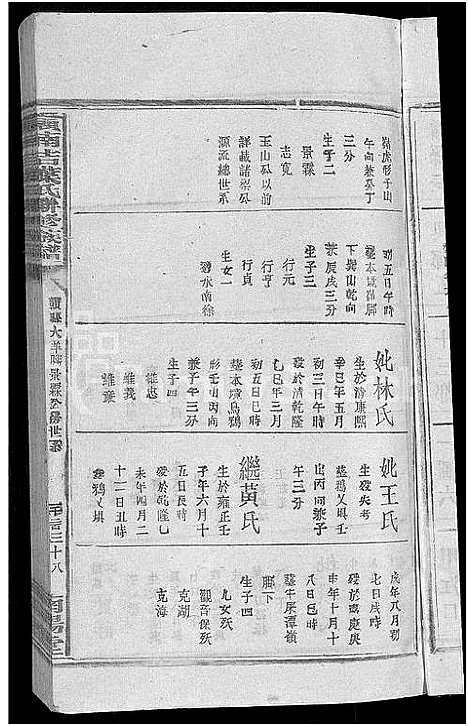 葬虎形子山
午向兼癸丁
三分
生子二
景霖
志寬
玉山公以前
詳載諸榮公
源流總世系
初五日午時
葬本境
下巽山乾向
兼辰戌三分
生子三
行元
行亨
行貞
生女一
適水南徐
妣林氏
生於清康熙
辛巳年五月
初三日午時
歿於清乾隆
乙巳年三月
初五日巳時
葬本境烏鴉
形壬山丙向
兼子午三分
生子四
維忠
維義
維兼
妣王氏
生歿失考
葬鴉乂垻壬
山丙向兼子
午三分
繼黃氏
生於雍正壬
子年六月十
五日辰時
歿於乾隆乙
未年四月二
十二日丑時
葬鴉乂垻
戌年八月初
七日戌時
歿於嘉慶庚
申年十月十
八日巳時
葬牛屎潭嶺
腳下
生子四
九女歿
觀音保歿
克湖
克海
贛縣大羊腳景霖公房世系
三十八